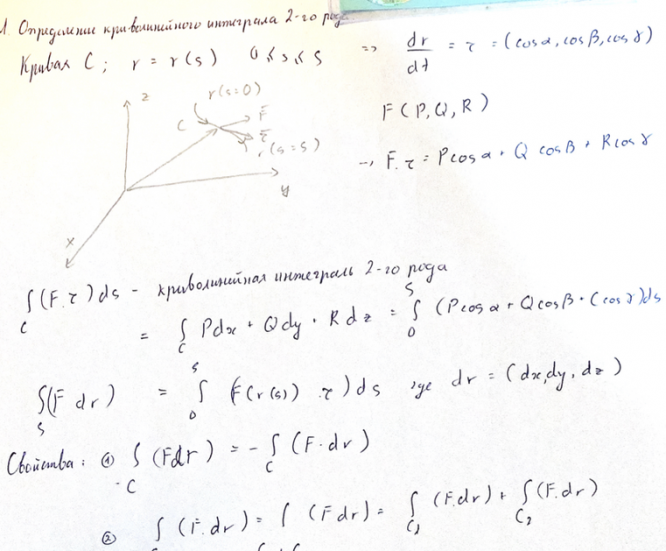 1. Определение криволинейного интеграла 2-го рода.
Кривая C; r = r(s) 0 ≤ s ≤ S => dr/dt = τ = (cosα, cosβ, cosγ)
z r(s=0) F F(P, Q, R)
C τ r(s=S) → F·τ = Pcosα + Q cosβ + R cosγ
y
x
∫_C (F·τ)ds - криволинейная интеграль 2-го рода
= ∫_C Pdx + Qdy + Rdz = ∫_0^S (Pcosα + Qcosβ + (cosγ)ds
∫_S (F dr) = ∫_0^S (F(r(s)) τ) ds, где dr = (dx, dy, dz)
Свойства: ① ∫_{-C} (Fdr) = - ∫_C (F·dr)
② ∫ (F·dr) = ∫ (Fdr) = ∫_{C₁} (F·dr) + ∫_{C₂} (F·dr)